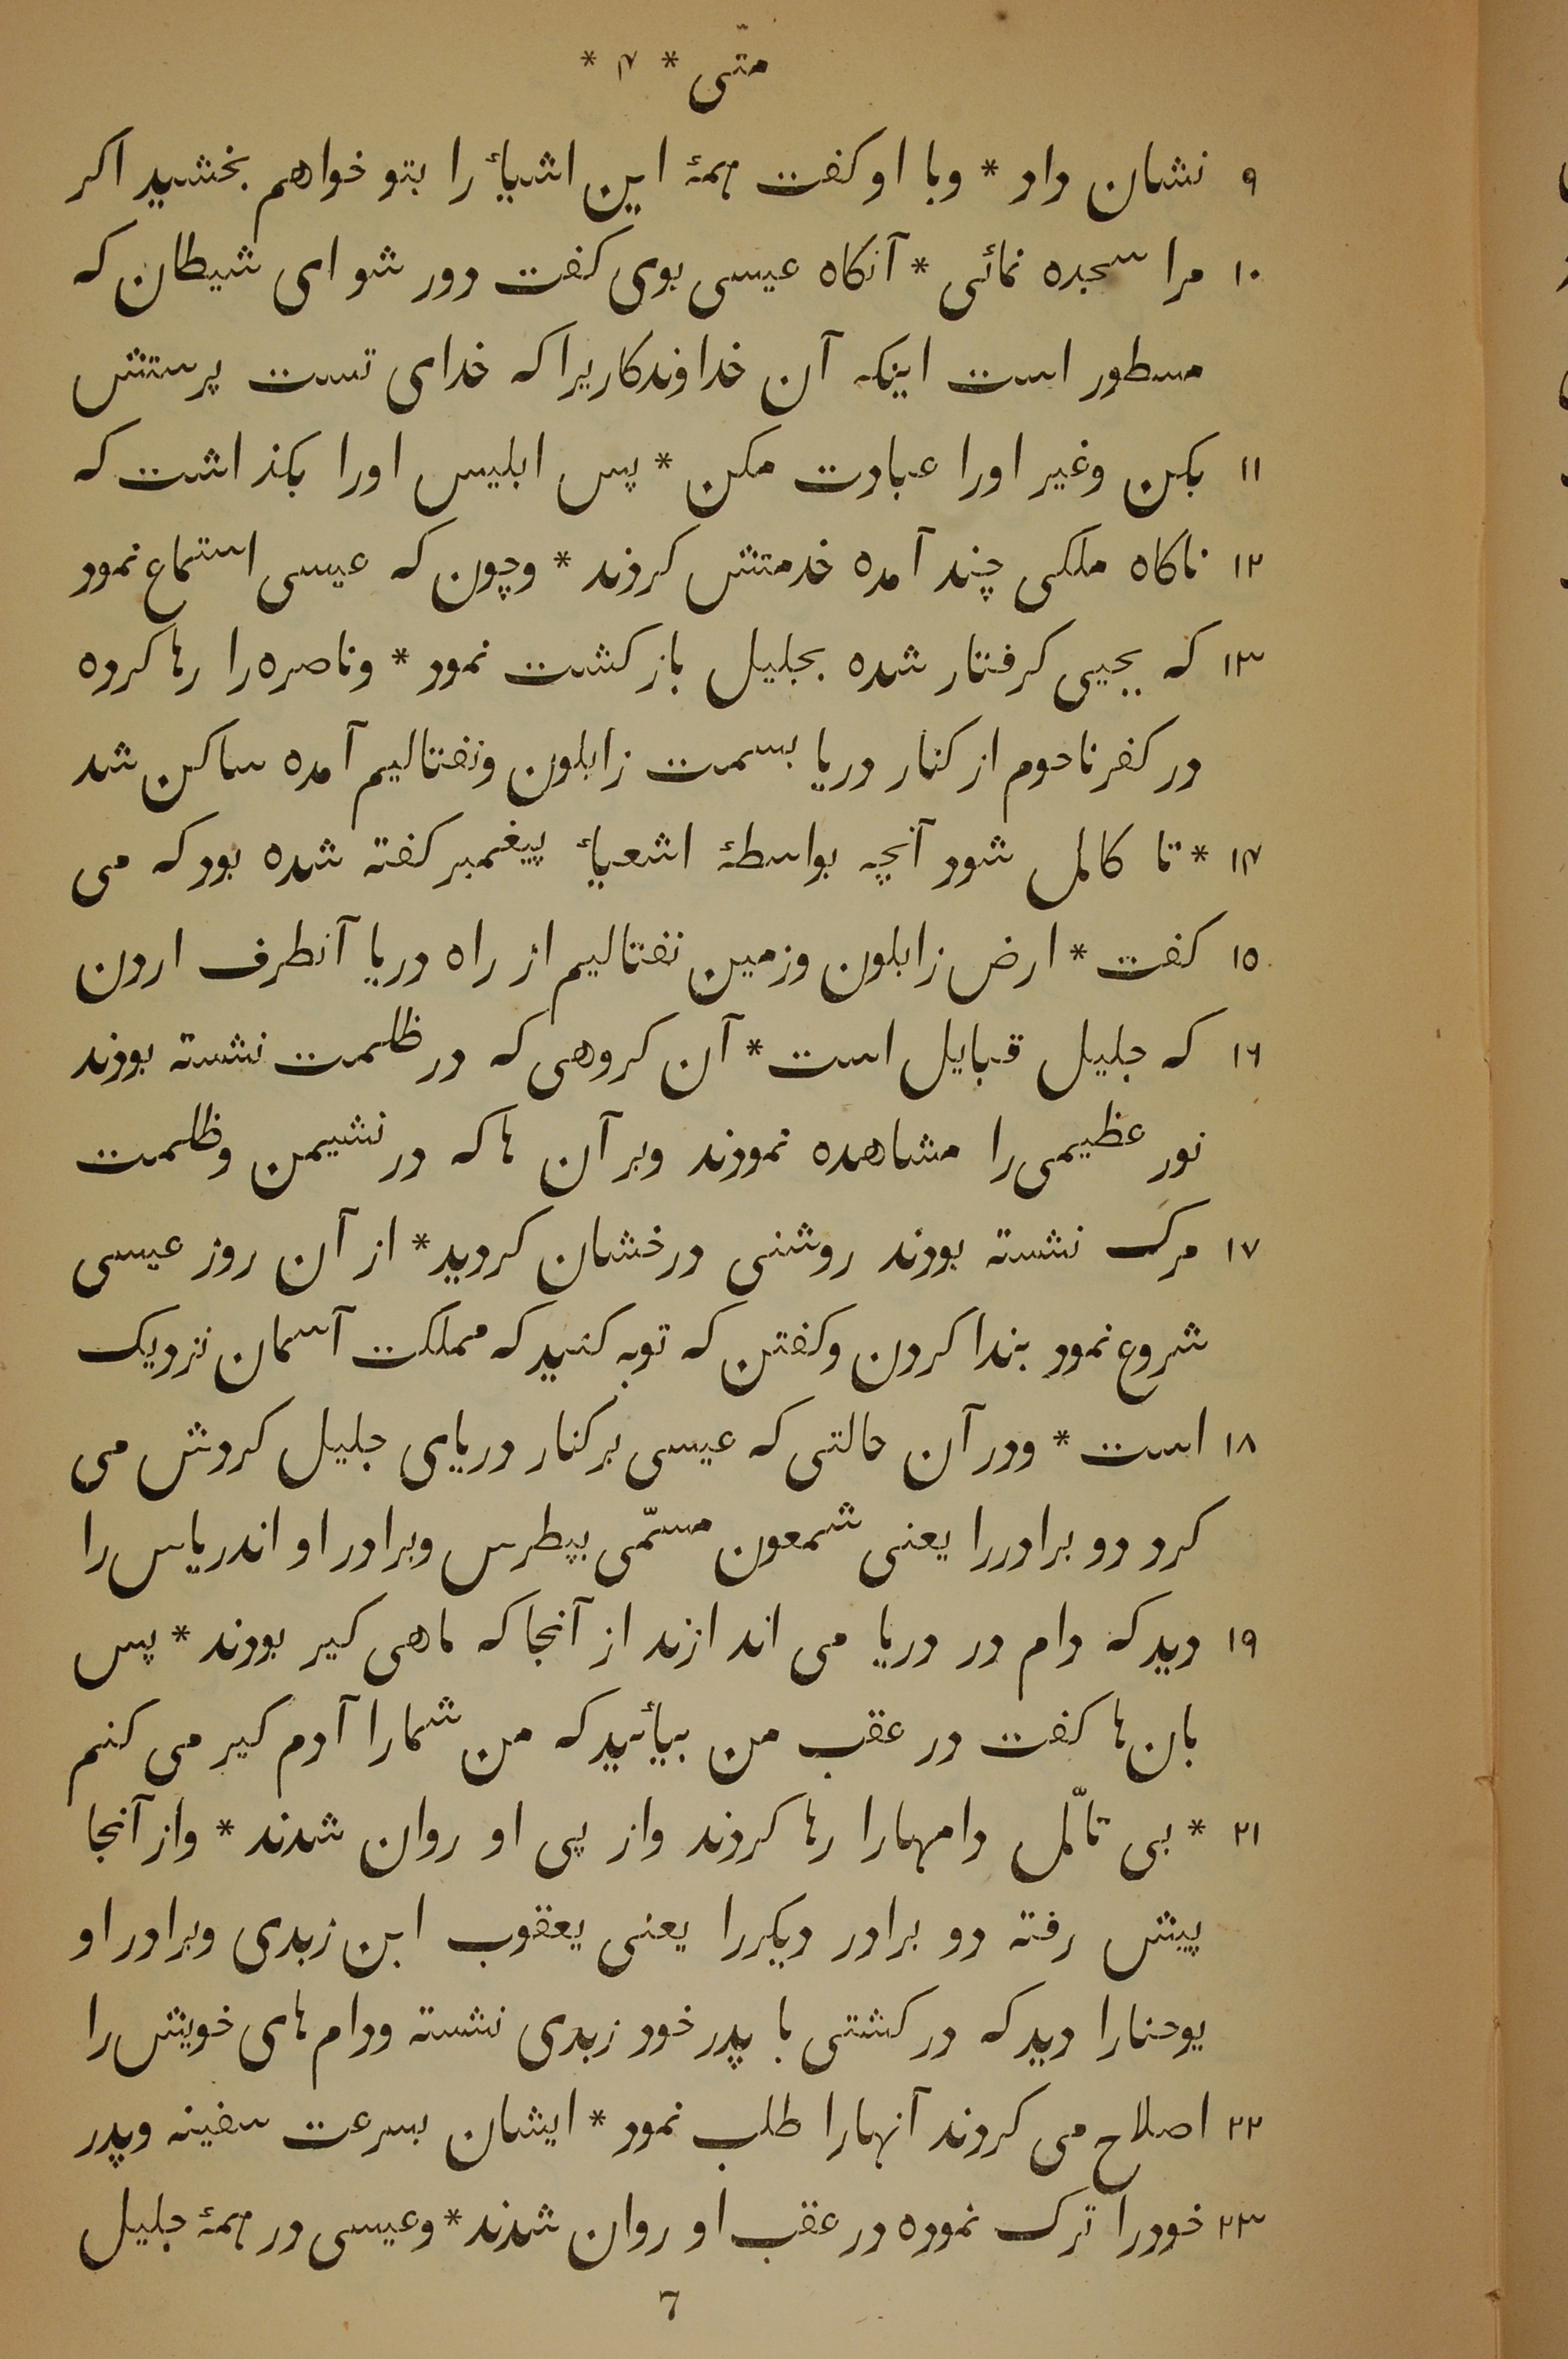 متّی * ۴ *
۹ نشان داد * وبا او کفت همهٔ این اشیأ را بتو خواهم بخشید اکر
۱۰ مرا سجده نمائی * آنکاه عیسی بوی کفت دور شو ای شیطان که
مسطور است اینکه آن خداوندکاریرا که خدای تست پرستش
۱۱ بکن وغیر اورا عبادت مکن * پس ابلیس اورا بکذاشت که
۱۲ ناکاه ملکی چند آمده خدمتش کردند * وچون که عیسی استماع نمود
۱۳ که یحیی کرفتار شده بجلیل بازکشت نمود * وناصره را رها کرده
در کفرناحوم از کنار دریا بسمت زابلون ونفتالیم آمده ساکن شد
۱۴ * تا کامل شود آنچه بواسطهٔ اشعیأ پیغمبر کفته شده بود که می
۱۵ کفت * ارض زابلون وزمین نفتالیم از راه دریا آنطرف اردن
۱۶ که جلیل قبایل است * آن کروهی که در ظلمت نشسته بودند
نور عظیمی را مشاهده نمودند وبر آن ها که در نشیمن وظلمت
۱۷ مرک نشسته بودند روشنی درخشان کردید * از آن روز عیسی
شروع نمود بندا کردن وکفتن که توبه کنید که مملکت آسمان نزدیک
۱۸ است * ودر آن حالتی که عیسی بر کنار دریای جلیل کردش می
کرد دو برادررا یعنی شمعون مسمّی بپطرس وبرادر او اندریاس را
۱۹ دید که دام در دریا می اندازند از آنجا که ماهی کیر بودند * پس
بان ها کفت در عقب من بیأئید که من شمارا آدم کیر می کنم
۲۱ * بی تامّل دامهارا رها کردند واز پی او روان شدند * واز آنجا
پیش رفته دو برادر دیکررا یعنی یعقوب ابن زبدی وبرادر او
یوحنارا دید که در کشتی با پدر خود زبدی نشسته ودام های خویش را
۲۲ اصلاح می کردند آنهارا طلب نمود * ایشان بسرعت سفینه وپدر
۲۳ خودرا ترک نموده در عقب او روان شدند * وعیسی در همهٔ جلیل
7